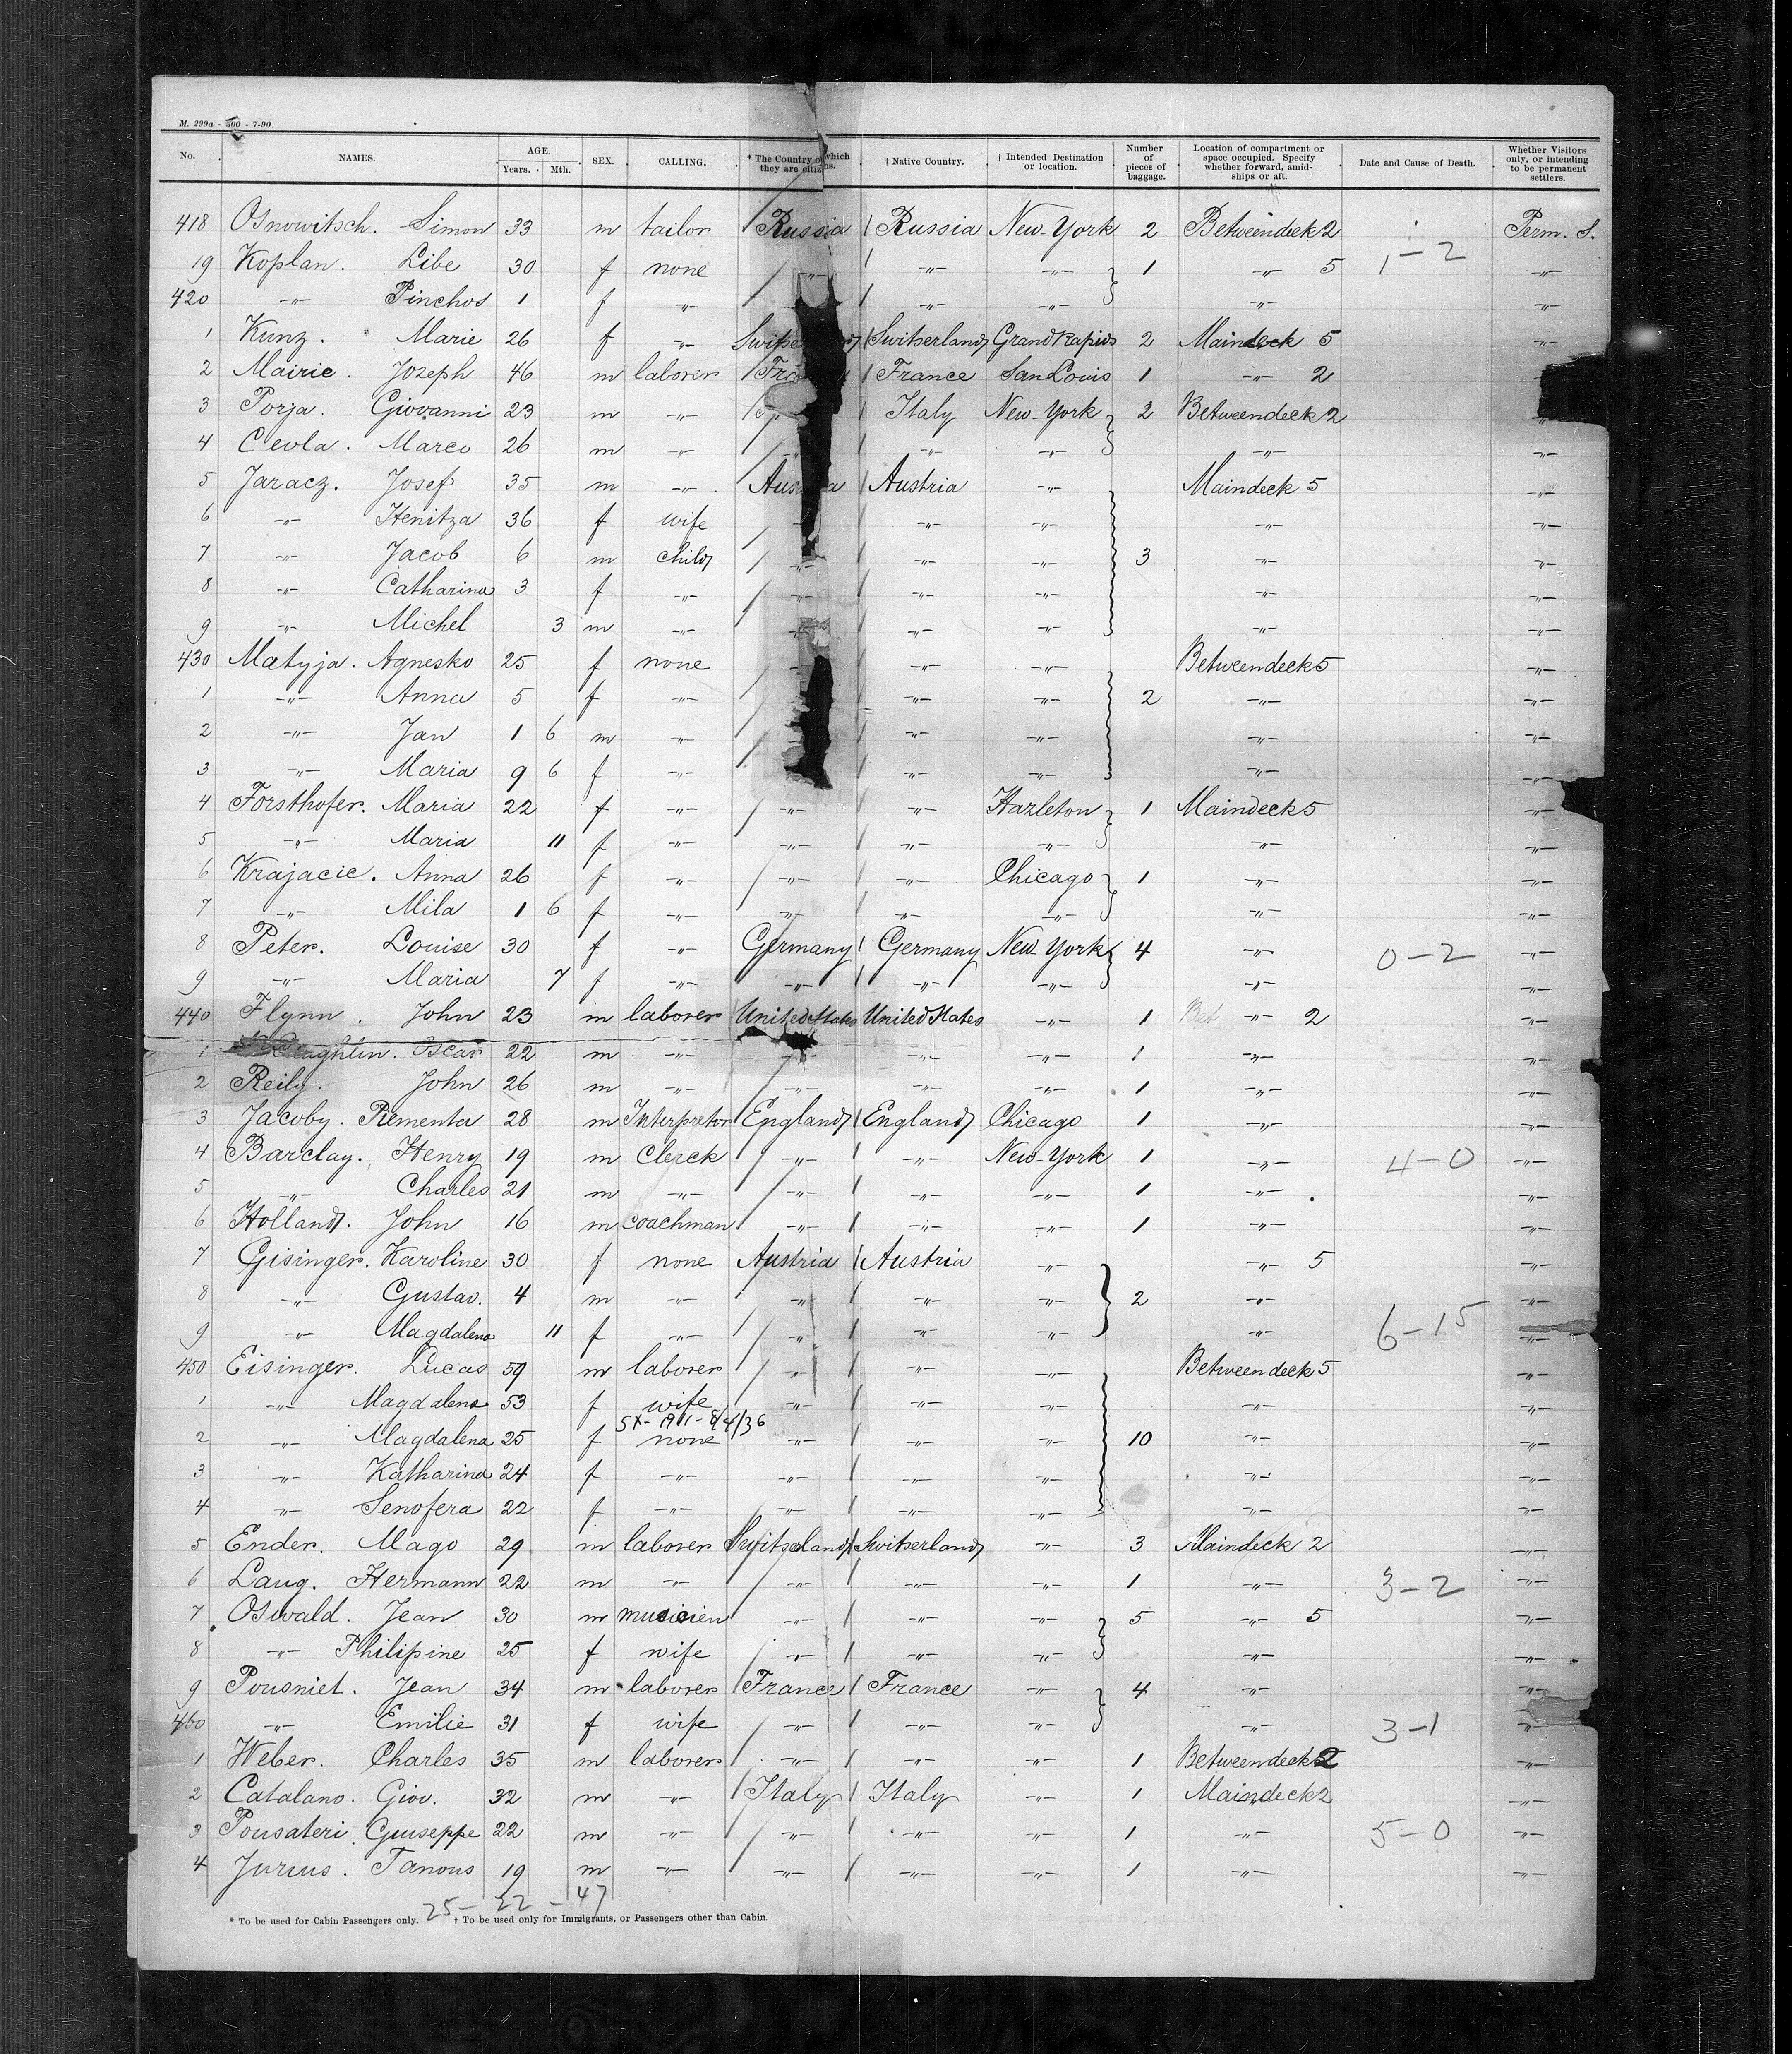 M. 299a - 500 - 7-90.
No. NAMES. AGE. Years. Mth. SEX. CALLING. * The Country of which they are citizens. † Native Country. † Intended Destination or location. Number of pieces of baggage. Location of compartment or space occupied. Specify whether forward, amidships or aft. Date and Cause of Death. Whether Visitors only, or intending to be permanent settlers.
418 Osnowitsch. Simon 33 m tailor Russia Russia New-York 2 Betweendeck 2 Perm. S.
19 Koplan. Libe 30 f none -"- -"- -"- 1 -"- 5 1-2 -"-
420 -"- Pinchos 1 f -"- -"- -"- -"- -"- -"-
1 Kunz. Marie 26 f -"- Switserland Grand Rapids 2 Maindeck 5 -"-
2 Mairie. Joseph 46 m laborer France San Louis 1 -"- 2
3 Porja. Giovanni 23 m -"- Italy New-York 2 Betweendeck 2
4 Cevla. Marco 26 m -"- -"- -"- -"- -"- -"-
5 Jaracz. Josef 35 m -"- Austria Austria -"- Maindeck 5 -"-
6 -"- Henitza 36 f wife -"- -"- -"- -"-
7 -"- Jacob 6 m child -"- -"- -"- 3 -"- -"-
8 -"- Catharina 3 f -"- -"- -"- -"- -"- -"-
9 -"- Michel 3 m -"- -"- -"- -"- -"-
430 Matyja. Agnesko 25 f none -"- -"- Betweendeck 5 -"-
1 -"- Anna 5 f -"- -"- -"- 2 -"- -"-
2 -"- Jan 1 6 m -"- -"- -"- -"- -"-
3 -"- Maria 9 6 f -"- -"- -"- -"- -"-
4 Forsthofer. Maria 22 f -"- -"- -"- Hazleton 1 Maindeck 5 -"-
5 -"- Maria 11 f -"- -"- -"- -"- -"- -"-
6 Krajacic. Anna 26 f -"- -"- -"- Chicago 1 -"- -"-
7 -"- Mila 1 6 f -"- -"- -"- -"- -"- -"-
8 Peter. Louise 30 f -"- Germany Germany New-York 4 -"- 0-2 -"-
9 -"- Maria 7 f -"- -"- -"- -"- -"- -"-
440 Flynn. John 23 m laborer United States United States -"- 1 Bet -"- 2 -"-
1 Oscar 22 m -"- -"- -"- -"- 1 -"- -"-
2 Reily. John 26 m -"- -"- -"- -"- 1 -"- -"-
3 Jacoby. Pimenta 28 m Interpretor England England Chicago 1 -"- -"-
4 Barclay. Henry 19 m Clerck -"- -"- New-York 1 -"- 4-0 -"-
5 -"- Charles 21 m -"- -"- -"- -"- 1 -"- -"-
6 Holland. John 16 m coachman -"- -"- -"- 1 -"- -"-
7 Gisinger. Karoline 30 f none Austria Austria -"- -"- 5 -"-
8 -"- Gustav. 4 m -"- -"- -"- -"- 2 -"- -"-
9 -"- Magdalena 11 f -"- -"- -"- -"- -"- 6-15 -"-
450 Eisinger. Lucas 59 m laborer -"- -"- -"- Betweendeck 5 -"-
1 -"- Magdalena 53 f wife -"- -"- -"- -"- -"-
5X- 1911- 8/4/36
2 -"- Magdalena 25 f none -"- -"- -"- 10 -"- -"-
3 -"- Katharina 24 f -"- -"- -"- -"- -"- -"-
4 -"- Senofera 22 f -"- -"- -"- -"- -"- -"-
5 Ender. Mago 29 m laborer Switserland Switserland -"- 3 Maindeck 2 -"-
6 Laug. Hermann 22 m -"- -"- -"- -"- 1 -"- 3-2 -"-
7 Oswald. Jean 30 m musicien -"- -"- -"- 5 -"- 5 -"-
8 -"- Philipine 25 f wife -"- -"- -"- -"- -"-
9 Pousniet. Jean 34 m laborer France France -"- 4 -"- -"-
460 -"- Emilie 31 f wife -"- -"- -"- -"- 3-1 -"-
1 Weber. Charles 35 m laborer -"- -"- -"- 1 Betweendeck 2 -"-
2 Catalano. Giov. 32 m -"- Italy Italy -"- 1 Maindeck 2 -"-
3 Pousateri. Guiseppe 22 m -"- -"- -"- -"- 1 -"- 5-0 -"-
4 Jurius. Tanous 19 m -"- -"- -"- -"- 1 -"- -"-
25 - 22 - 47
* To be used for Cabin Passengers only. † To be used only for Immigrants, or Passengers other than Cabin.